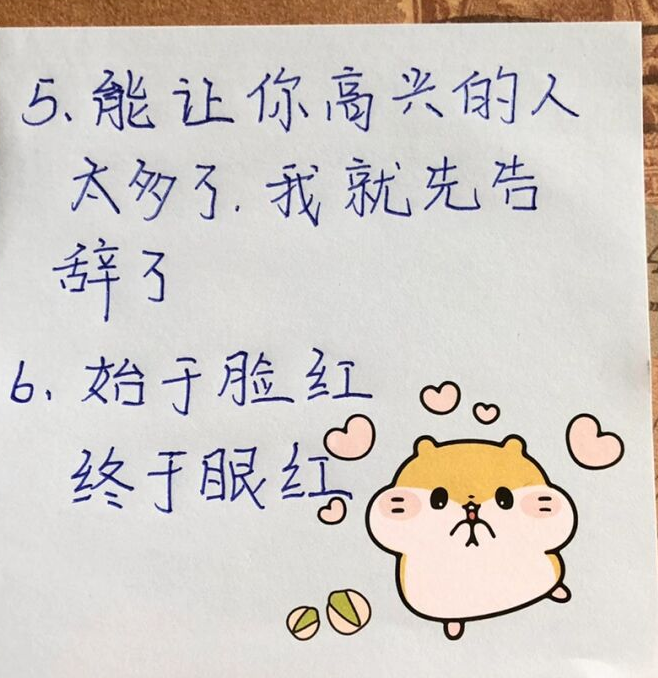 5、能让你高兴的人
太多了.我就先告
辞了
6、始于脸红
终于眼红